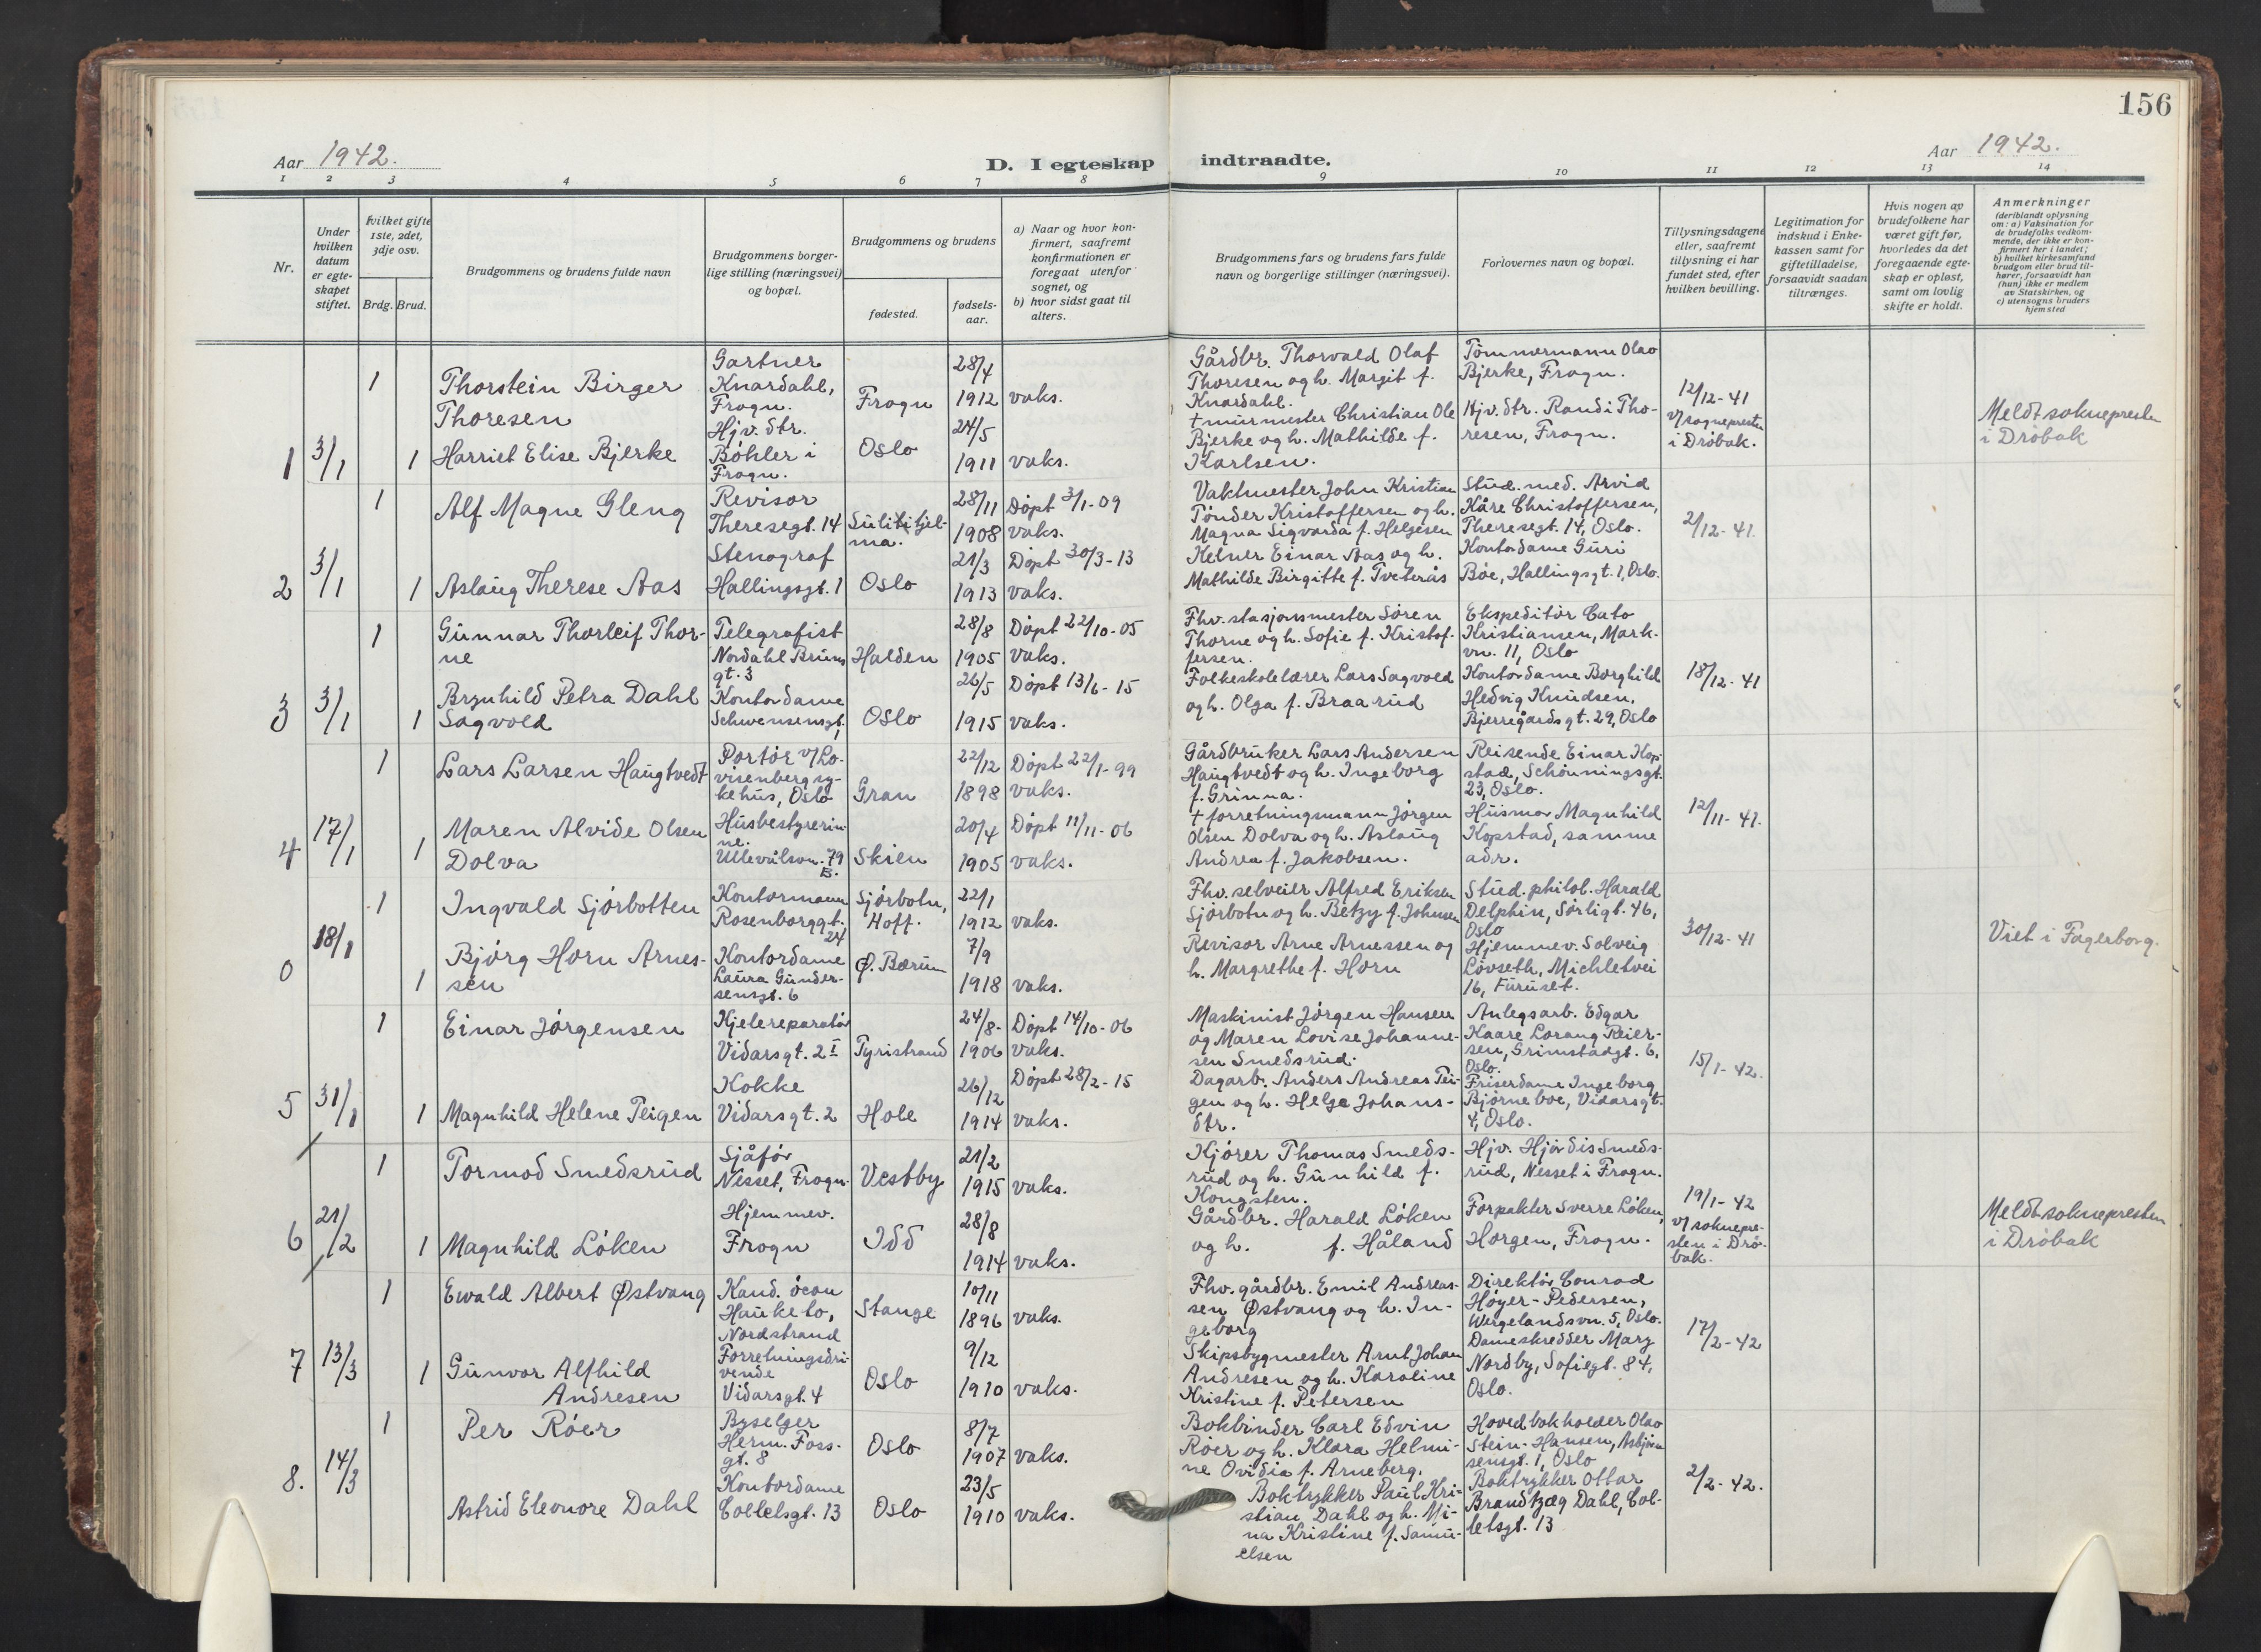 156
Aar 1942.
D. I egteskap indtraadte.
Aar 1942.
1 2 3 4 5 6 7 8 9 10 11 12 13 14
Nr.
Under hvilken datum er egteskapet stiftet.
Hvilket gifte 1ste, 2det, 3dje osv.
Brdg. Brud.
Brudgommens og brudens fulde navn
Brudgommens borgerlige stilling (næringsvei) og bopæl.
Brudgommens og brudens
fødested.
fødselsaar.
a) Naar og hvor konfirmert, saafremt konfirmationen er foregaat utenfor sognet, og
b) hvor sidst gaat til alters.
Brudgommens fars og brudens fars fulde navn og borgerlige stillinger (næringsvei).
Forlovernes navn og bopæl.
Tillysningsdagene eller, saafremt tillysning ei har fundet sted, efter hvilken bevilling.
Legitimation for indskud i Enkekassen samt for giftetilladelse, forsaavidt saadan tiltrænges.
Hvis nogen av brudefolkene har været gift før, hvorledes da det foregaaende egteskap er opløst, samt om lovlig skifte er holdt.
Anmerkninger
(deriblandt oplysning om: a) Vaksination for de brudefolks vedkommende, der ikke er konfirmert her i landet; b) hvilket kirkesamfund brudgom eller brud tilhører, forsaavidt han (hun) ikke er medlem av Statskirken, og c) utensogns bruders hjemsted
1 3/1
1 Thorstein Birger Thoresen
Gartner Knardahl, Frogn.
Frogn
28/4 1912
vaks.
Gårdbr. Thorvald Olaf Thoresen og h. Margit f. Knardahl.
Tømmermann Olav Bjerke, Frogn.
12/12-41 v/ sognepresten i Drøbak.
Meldt soknepresten i Drøbak
1 Harriet Elise Bjerke
Hjv. dtr. Bøhler i Frogn.
Oslo
24/5 1911
vaks.
+ murmester Christian Ole Bjerke og h. Mathilde f. Karlsen.
Hjv. dtr. Randi Thoresen, Frogn.
2 3/1
1 Alf Magne Gleng
Revisor Theresegt. 14
Sulititjelma.
28/11 1908
Døpt 3/1-09 vaks.
Vaktmester John Kristian Tønder Kristoffersen og h. Magna Sigvarda f. Helgesen
Stud. med. Arvid Kåre Christoffersen, Theresegt. 14, Oslo.
2/12-41.
1 Aslaug Therese Aas
Stenograf Hallingsgt. 1
Oslo
21/3 1913
Døpt 30/3-13 vaks.
Kelner Einar Aas og h. Mathilde Birgitte f. Tveterås
Kontordame Guri Bøe, Hallingsgt. 1, Oslo.
3 3/1
1 Gunnar Thorleif Thorne
Telegrafist Nordahl Bruns gt. 3
Halden
28/8 1905
Døpt 22/10-05 vaks.
Fhv. stasjonsmester Søren Thorne og h. Sofie f. Kristoffersen.
Ekspeditør Cato Kristiansen, Markvn. 11, Oslo
18/12-41
1 Brynhild Petra Dahl Sagvold
Kontordame Schwensensgt. 1
Oslo
26/5 1915
Døpt 13/6-15 vaks.
Folkeskolelærer Lars Sagvold og h. Olga f. Braarud
Kontordame Borghild Hedvig Knudsen. Bjerregårdsgt. 29, Oslo
4 17/1
1 Lars Larsen Haugtvedt
Portør v/ Lovisenberg sykehus, Oslo
Gran
22/12 1898
Døpt 22/1-99 vaks.
Gårdbruker Lars Andersen Haugtvedt og h. Ingeborg f. Grinna.
Reisende Einar Kopstad, Schønningsgt. 23, Oslo.
12/11-41.
1 Maren Alvide Olsen Dolva
Husbestyrerinne. Ullevålsvn. 79 B.
Skien
20/4 1905
Døpt 11/11-06 vaks.
+ forretningsmann Jørgen Olsen Dolva og h. Aslaug Andrea f. Jakobsen.
Husmor Magnhild Kopstad, samme adr.
0 18/1
1 Ingvald Sjørbotten
Kontormann Rosenborggt. 24
Sjørbotn, Hoff.
22/1 1912
vaks.
Fhv. selveier Alfred Eriksen Sjørbotn og h. Betzy f. Johnsen
Stud. philol. Harald Delphin, Sørligt. 46, Oslo
30/12-41
Viet i Fagerborg.
1 Bjørg Horn Arnessen
Kontordame Laura Gundersensgt. 6
Ø. Bærum
7/9 1918
vaks.
Revisor Arne Arnessen og h. Margrethe f. Horn
Hjemmev. Solveig Løvseth, Michletvei 16, Furuset.
5 31/1
1 Einar Jørgensen
Kjelereparatør Vidarsgt. 2 I
Tyristrand
24/8- 1906
Døpt 14/10-06 vaks.
Maskinist Jørgen Hansen og Maren Lovise Johannesen Smedsrud.
Anlegsarb. Edgar Kaare Lorang Reiersen, Grimstadgt. 6, Oslo.
15/1-42.
1 Magnhild Helene Teigen
Kokke Vidarsgt. 2
Hole
26/12 1914
Døpt 28/2-15 vaks.
Dagarb. Anders Andreas Teigen og h. Helga Johansdtr.
Friserdame Ingeborg Bjørneboe, Vidarsgt. 4, Oslo.
6 21/2
1 Tormod Smedsrud
Sjåfør Nesset, Frogn.
Vestby
21/2 1915
vaks.
Kjører Thomas Smedsrud og h. Gunhild f. Kongsten.
Hjv. Hjørdis Smedsrud, Nesset i Frogn.
19/1-42 v/ soknepresten i Drøbak.
Meldt soknepresten i Drøbak
1 Magnhild Løken
Hjemmev. Frogn
Idd
28/8 1914
vaks.
Gårdbr. Harald Løken og h. f. Håland
Forpakter Sverre Løken, Horgen, Frogn.
7 13/3
1 Ewald Albert Østvang
Kand. øcon Hauketo, Nordstrand
Stange
10/11 1896
vaks.
Fhv. gårdbr. Emil Andreassen Østvang og h. Ingeborg
Direktør Conrad Høyer-Pedersen, Wergelandsvn. 5, Oslo.
17/2-42
1 Gunvor Alfhild Andresen
Forretningsdrivende Vidarsgt. 4
Oslo
9/12 1910
vaks.
Skipsbygmester Arnt Johan Andresen og h. Karoline Kristine f. Petersen
Dameskredder Mary Nordby, Sofiegt. 84, Oslo.
8. 14/3
1 Per Röer
Byselger Herm. Fossgt. 8
Oslo
8/7 1907
vaks.
Bokbinder Carl Edvin Roer og h. Klara Helmine Ovidia f. Arneberg.
Hovedbokholder Olav Stein-Hansen, Asbjørnsensgt. 1, Oslo
2/2-42.
Astrid Eleonore Dahl
Kontordame Colletsgt. 13
Oslo
23/5 1910
vaks.
Boktrykker Paul Kristian Dahl og h. Mina Kristine f. Samuelsen
Boktrykker Ottar Brandtzæg Dahl, Colletsgt. 13